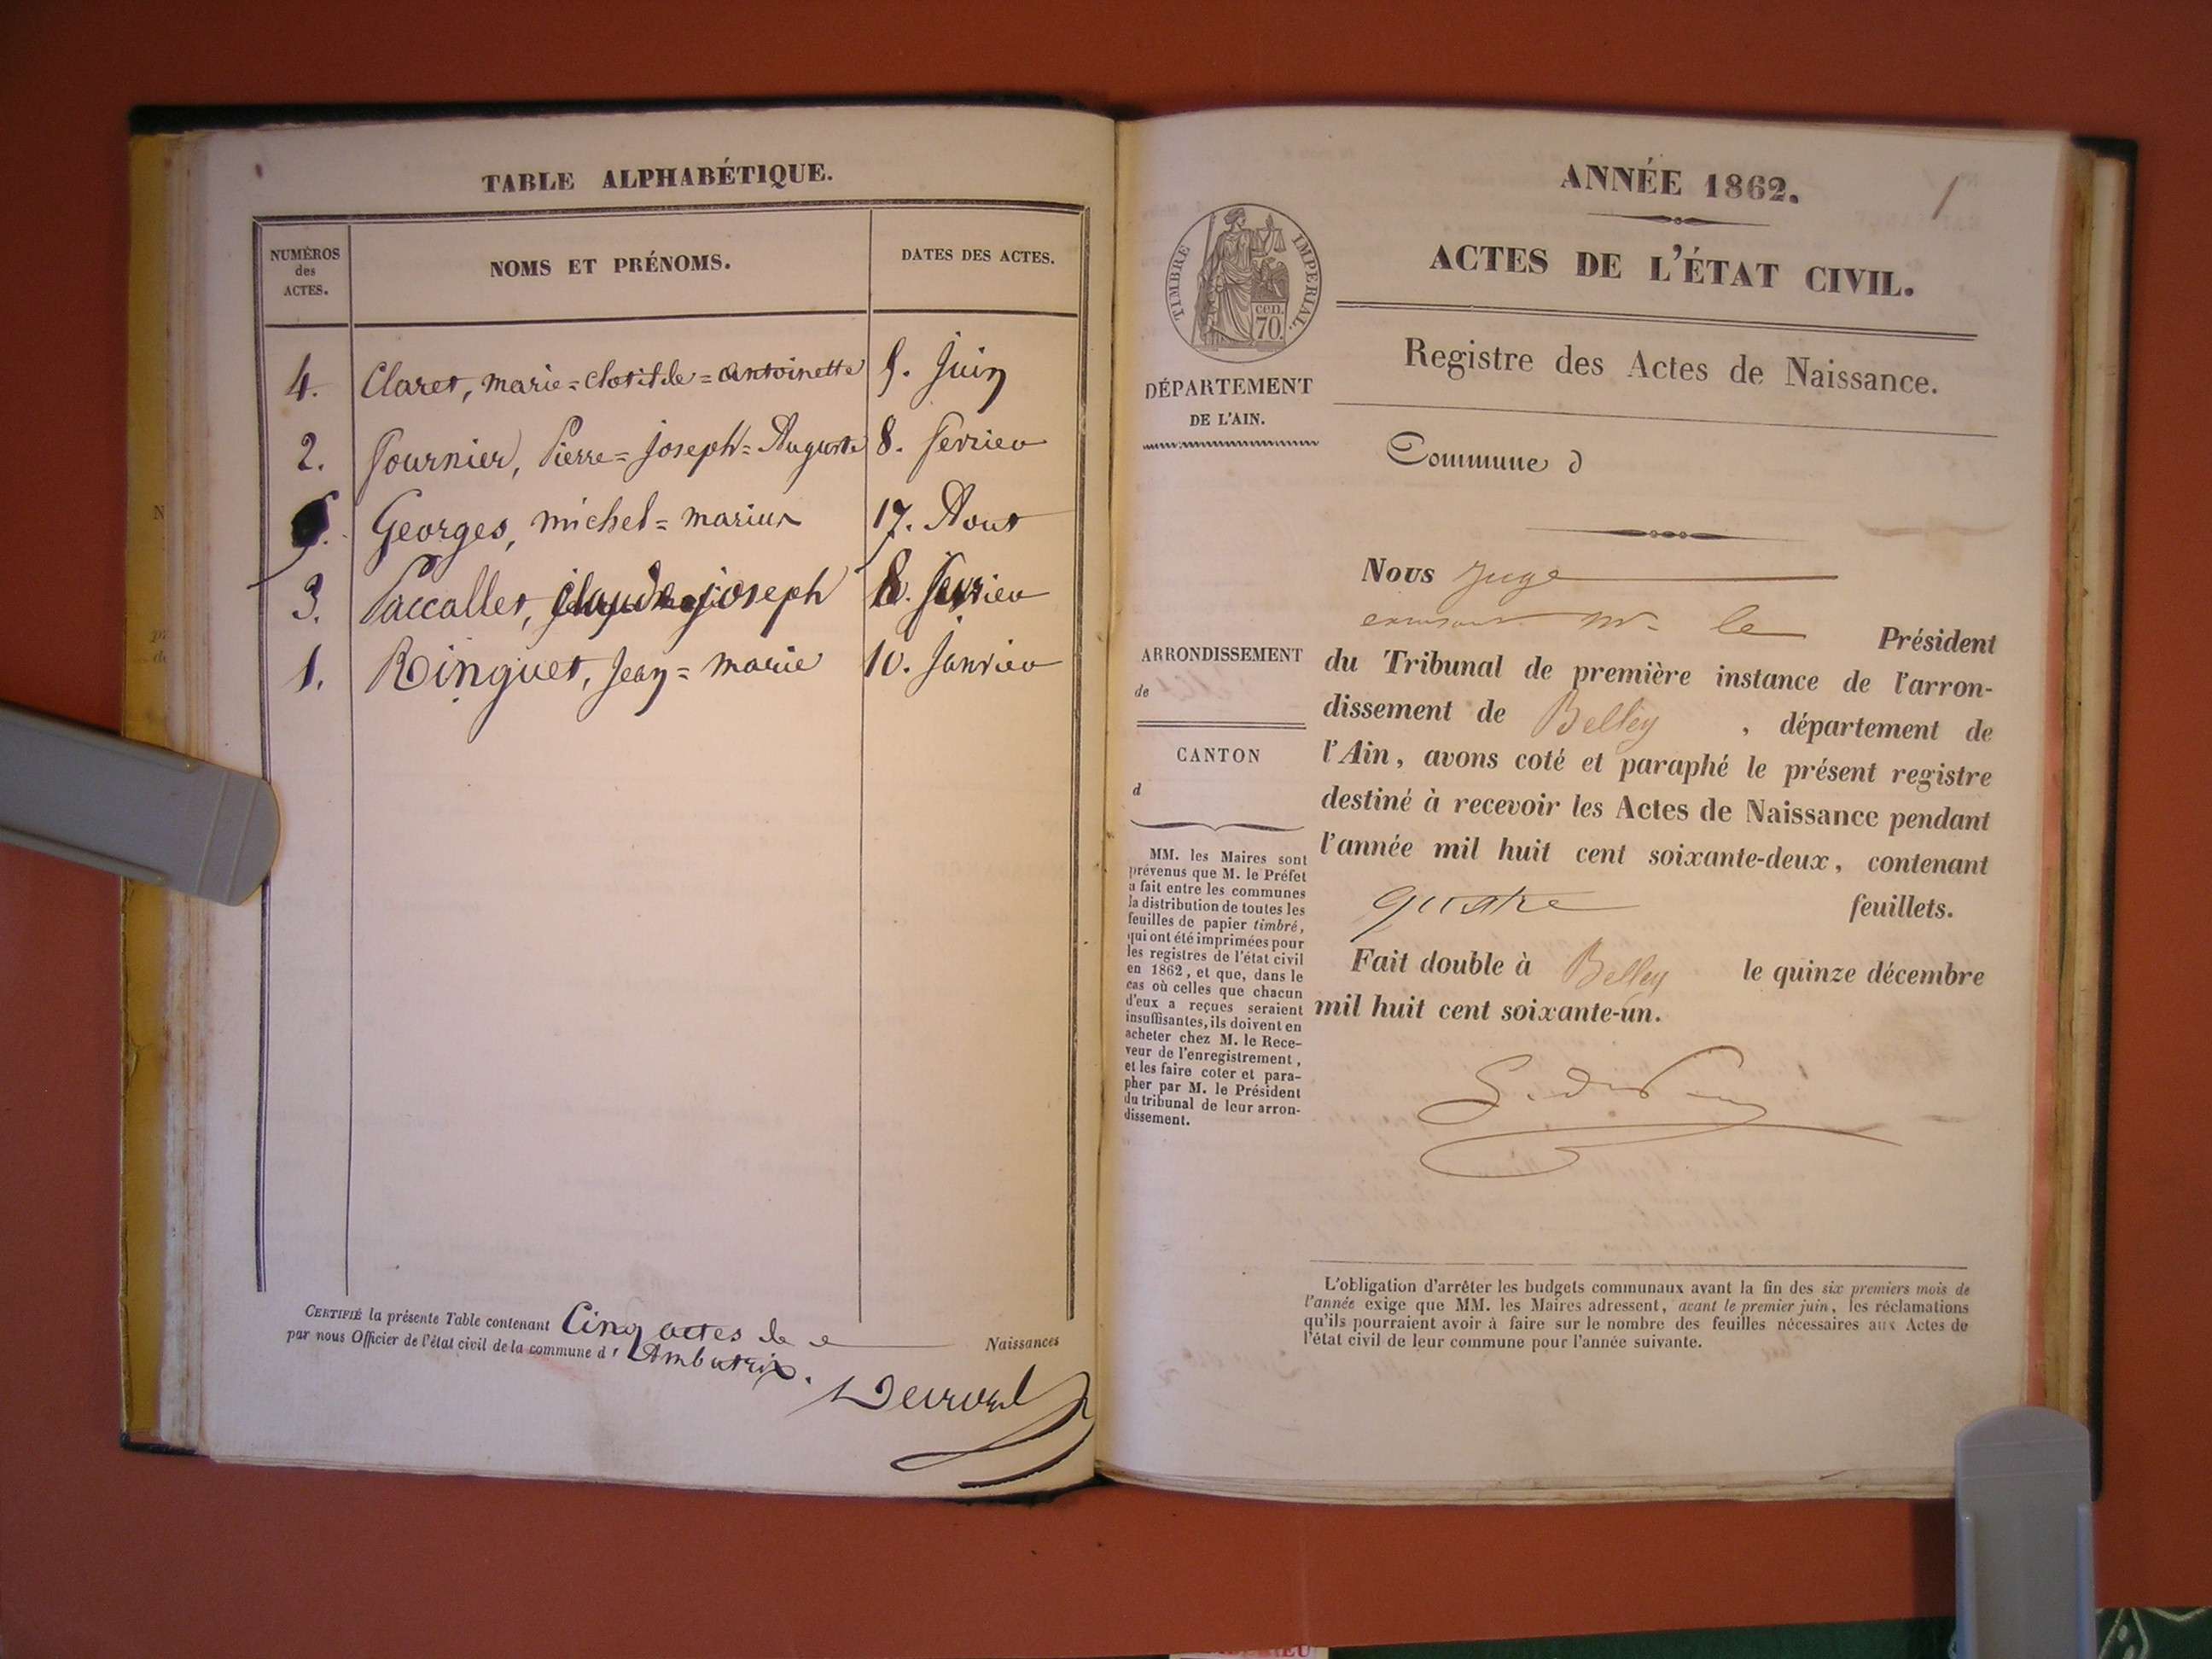 TABLE ALPHABÉTIQUE.
NUMÉROS
des
ACTES.
NOMS ET PRÉNOMS.
DATES DES ACTES.
4. Claret, marie=clotilde=antoinette 5. Juin
2. Fournier, Pierre=joseph=Auguste 8. fevrier
5. Georges, michel=marius 17. Aout
3. Paccallet, claude joseph 8. fevrier
1. Ringuet, Jean=marie 10. Janvier
CERTIFIÉ la présente Table contenant Cinq actes de Naissances
par nous Officier de l'état civil de la commune d'Ambutrix.
1
ANNÉE 1862.
TIMBRE IMPERIAL.
cen.
70.
ACTES DE L'ÉTAT CIVIL.
Registre des Actes de Naissance.
DÉPARTEMENT
DE L'AIN.
Commune d
ARRONDISSEMENT
de
CANTON
d
MM. les Maires sont
prévenus que M. le Préfet
a fait entre les communes
la distribution de toutes les
feuilles de papier timbré,
qui ont été imprimées pour
les registres de l'état civil
en 1862, et que, dans le
cas où celles que chacun
d'eux a reçues seraient
insuffisantes, ils doivent en
acheter chez M. le Rece-
veur de l'enregistrement,
et les faire coter et para-
pher par M. le Président
du tribunal de leur arron-
dissement.
Nous juge
Mr le Président
du Tribunal de première instance de l'arron-
dissement de Belley, département de
l'Ain, avons coté et paraphé le présent registre
destiné à recevoir les Actes de Naissance pendant
l'année mil huit cent soixante-deux, contenant
quatre feuillets.
Fait double à Belley le quinze décembre
mil huit cent soixante-un.
L'obligation d'arrêter les budgets communaux avant la fin des six premiers mois de
l'année exige que MM. les Maires adressent, avant le premier juin, les réclamations
qu'ils pourraient avoir à faire sur le nombre des feuilles nécessaires aux Actes de
l'état civil de leur commune pour l'année suivante.